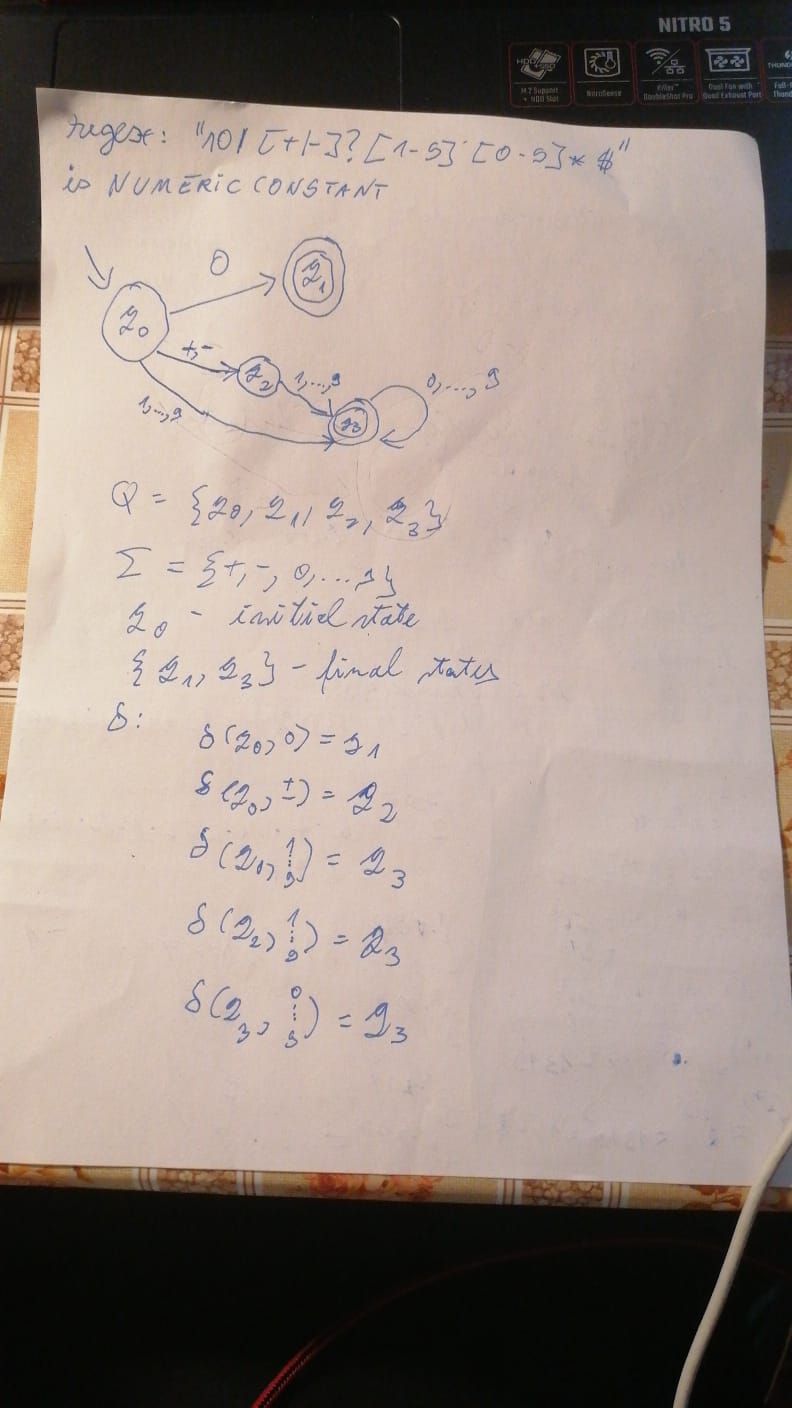 NITRO 5
M.2 Support + HDD Slot
NitroSense
Killer™ DoubleShot Pro
Dual Fan with Quad Exhaust Port
regex: "^0| [+|-]? [1-9] [0-9]* $"
is NUMERIC CONSTANT
0
q1
q0
+,-
q2
1,...,9
0,...,9
1,...,9
q3
Q = {q0, q1, q2, q3}
Σ = {+, -, 0, ... 9}
q0 - initial state
{q1, q3} - final states
δ:
δ(q0, 0) = q1
δ(q0, ±) = q2
δ(q0, 1⋮9) = q3
δ(q2, 1⋮9) = q3
δ(q3, 0⋮9) = q3